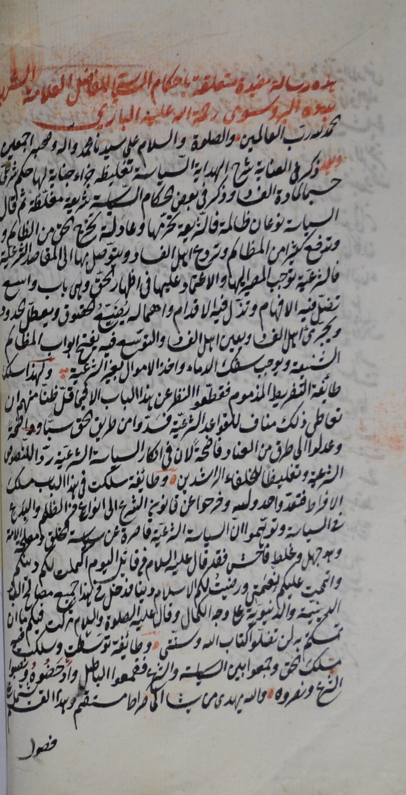 هذه رسالة مفيدة متعلقة باحكام السياسة للفاضل العلامة الشهير
بدده البروسوى رحمة الله عليه البارى
الحمد لله رب العالمين والصلوة والسلام على سيدنا محمد واله وصحبه اجمعين
وبعد ذكر فى العناية شرح الهداية السياسة تغليظ جزاء جناية لها حكم شرعى
حسما لمادة الفساد وذكر فى بعض السياسة شرعية مغلظة ثم قال
السياسة نوعان ظالمة فالشريعة تحرمها وعادلة تخرج الحق من الظالم
وتدفع كثيرا من المظالم وتردع اهل الفساد ويتوصل بها الى المقاصد الشرعية
فالشرعية توجب المصير اليها والاعتماد عليها فى اظهار الحق وهى باب واسع
تضل فيه الافهام وتزل فيه الاقدام واهماله يضيع الحقوق ويعطل الحدود
ويجرئ اهل الفساد ويعين اهل العناد والتوسع فيه يفتح ابواب المظالم
الشنيعة ويوجب سفك الدماء واخذ الاموال بغير الشرعية ولهذا سلك
طائفة التفريط المذموم فقطعوا النظر عن هذا الباب الا فيما قل ظنا منهم ان
تعاطى ذلك مناف للقواعد الشرعية فسدوا من طرق الحق سبيلا واضحة
وعدلوا الى طرق من العناد فاضحة لان فى انكار السياسة الشرعية ردا للنصوص
الشرعية وتغليطا للخلفاء الراشدين وطائفة سلكت فى هذا الباب مسلك
الافراط فتعدوا حدود الله وخرجوا عن قانون الشرع الى انواع من الظلم والبدع
فى السياسة وتوهموا ان السياسة الشرعية قاصرة عن سياسة الخلق ومصلحة الامة
وهو جهل وغلط فاحش فقد قال عز من قائل اليوم اكملت لكم دينكم
واتممت عليكم نعمتى ورضيت لكم الاسلام دينا فدخل فى هذا جميع مصالح العباد
الدينية والدنيوية على وجه الكمال وقال عليه الصلوة والسلام تركت فيكم ما ان
تمسكتم به لن تضلوا كتاب الله وسنتى وطائفة توسطت وسلكت فيه
مسلك الحق وجمعوا بين السياسة والشرع فقمعوا الباطل وادحضوه ونصبوا
الشرع ونصروه والله يهدى من يشاء الى صراط مستقيم
فصول